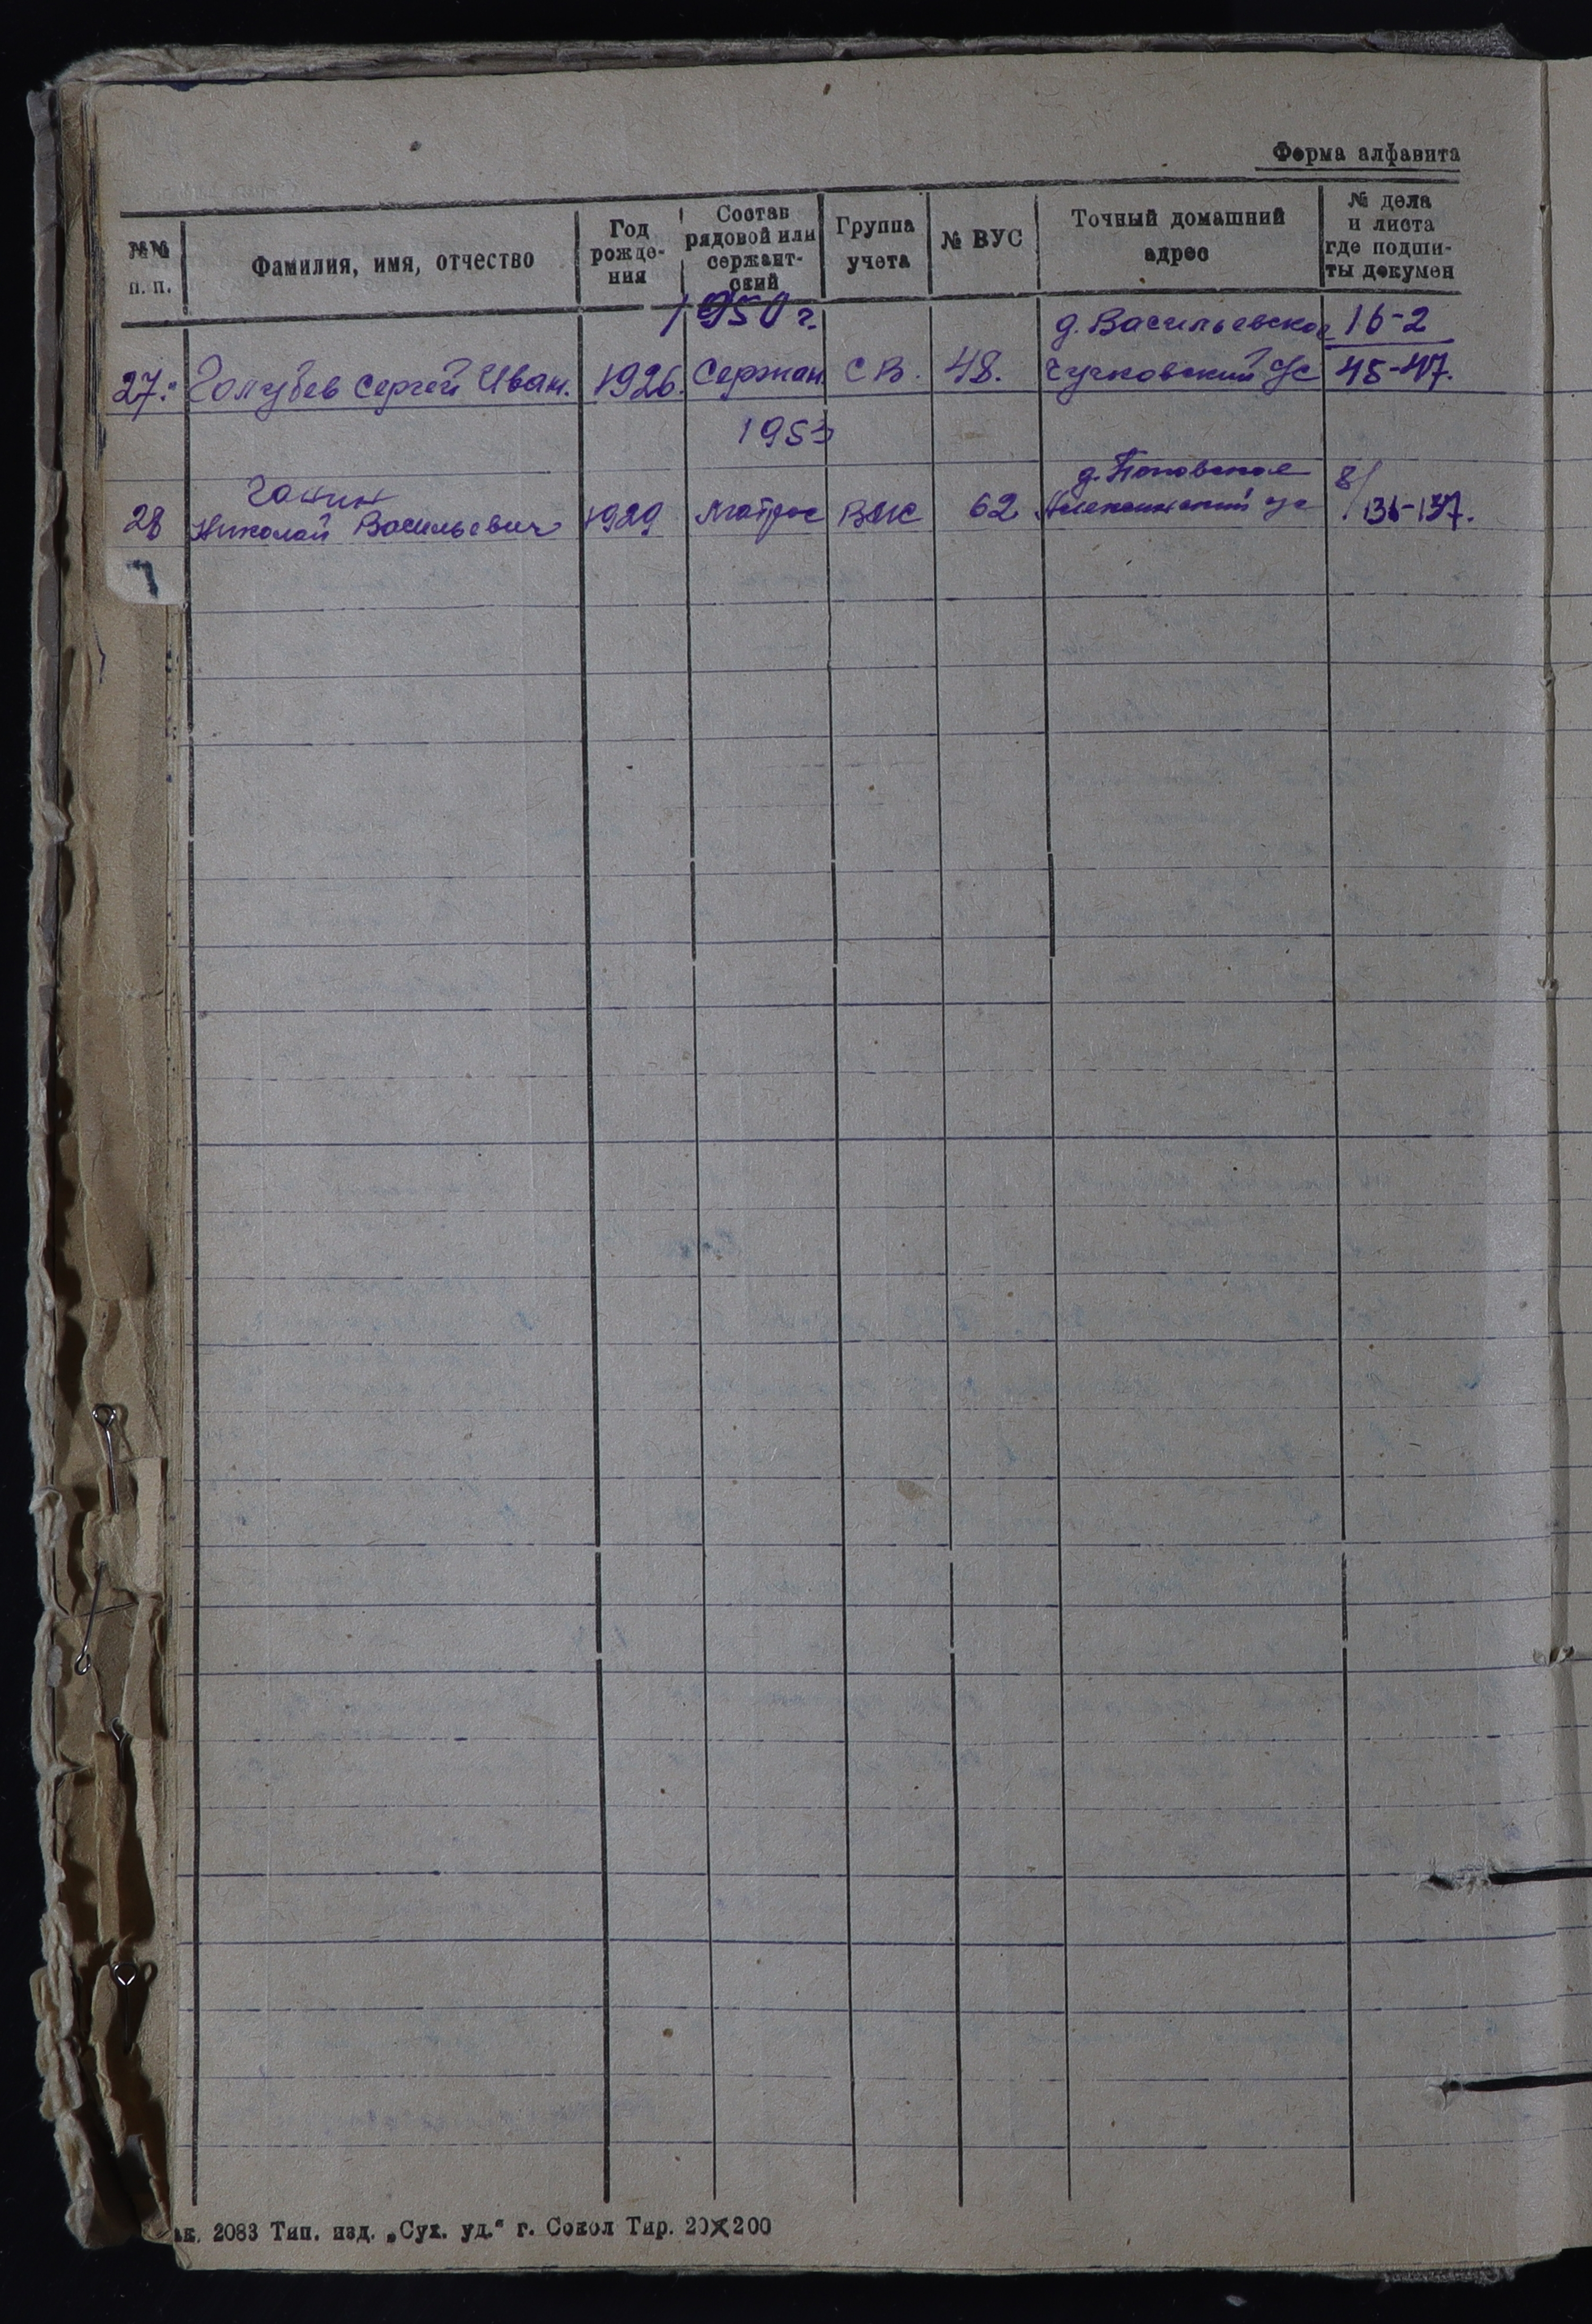 Форма алфавита
№№ п. п.
Фамилия, имя, отчество
Год рожде- ния
Состав рядовой или сержант- ский
Группа учета
№ ВУС
Точный домашний адрес
№ дела и листа где подши- ты докумен
1950 г.
д. Васильевское 16-2
27. Голубев Сергей Иван. 1926. Сержан. СВ. 48. Чучковский с/с 45-47.
1953
Ганин д. Поповское 8/
28 Николай Васильевич 1929 Матрос ВМС 62 с/с 136-137.
7
ак. 2083 Тип. изд. „Сух. уд.“ г. Сокол Тир. 20×200